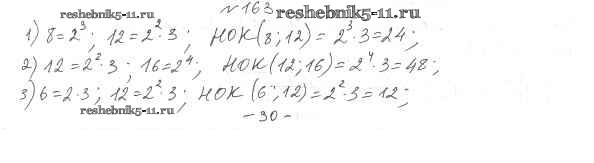 reshebnik5-11.ru
№163
reshebnik5-11.ru
1) 8=2³; 12=2²·3; НОК(8;12)=2³·3=24;
2) 12=2²·3; 16=2⁴; НОК(12;16)=2⁴·3=48;
3) 6=2·3; 12=2²·3; НОК(6;12)=2²·3=12;
reshebnik5-11.ru
-30-